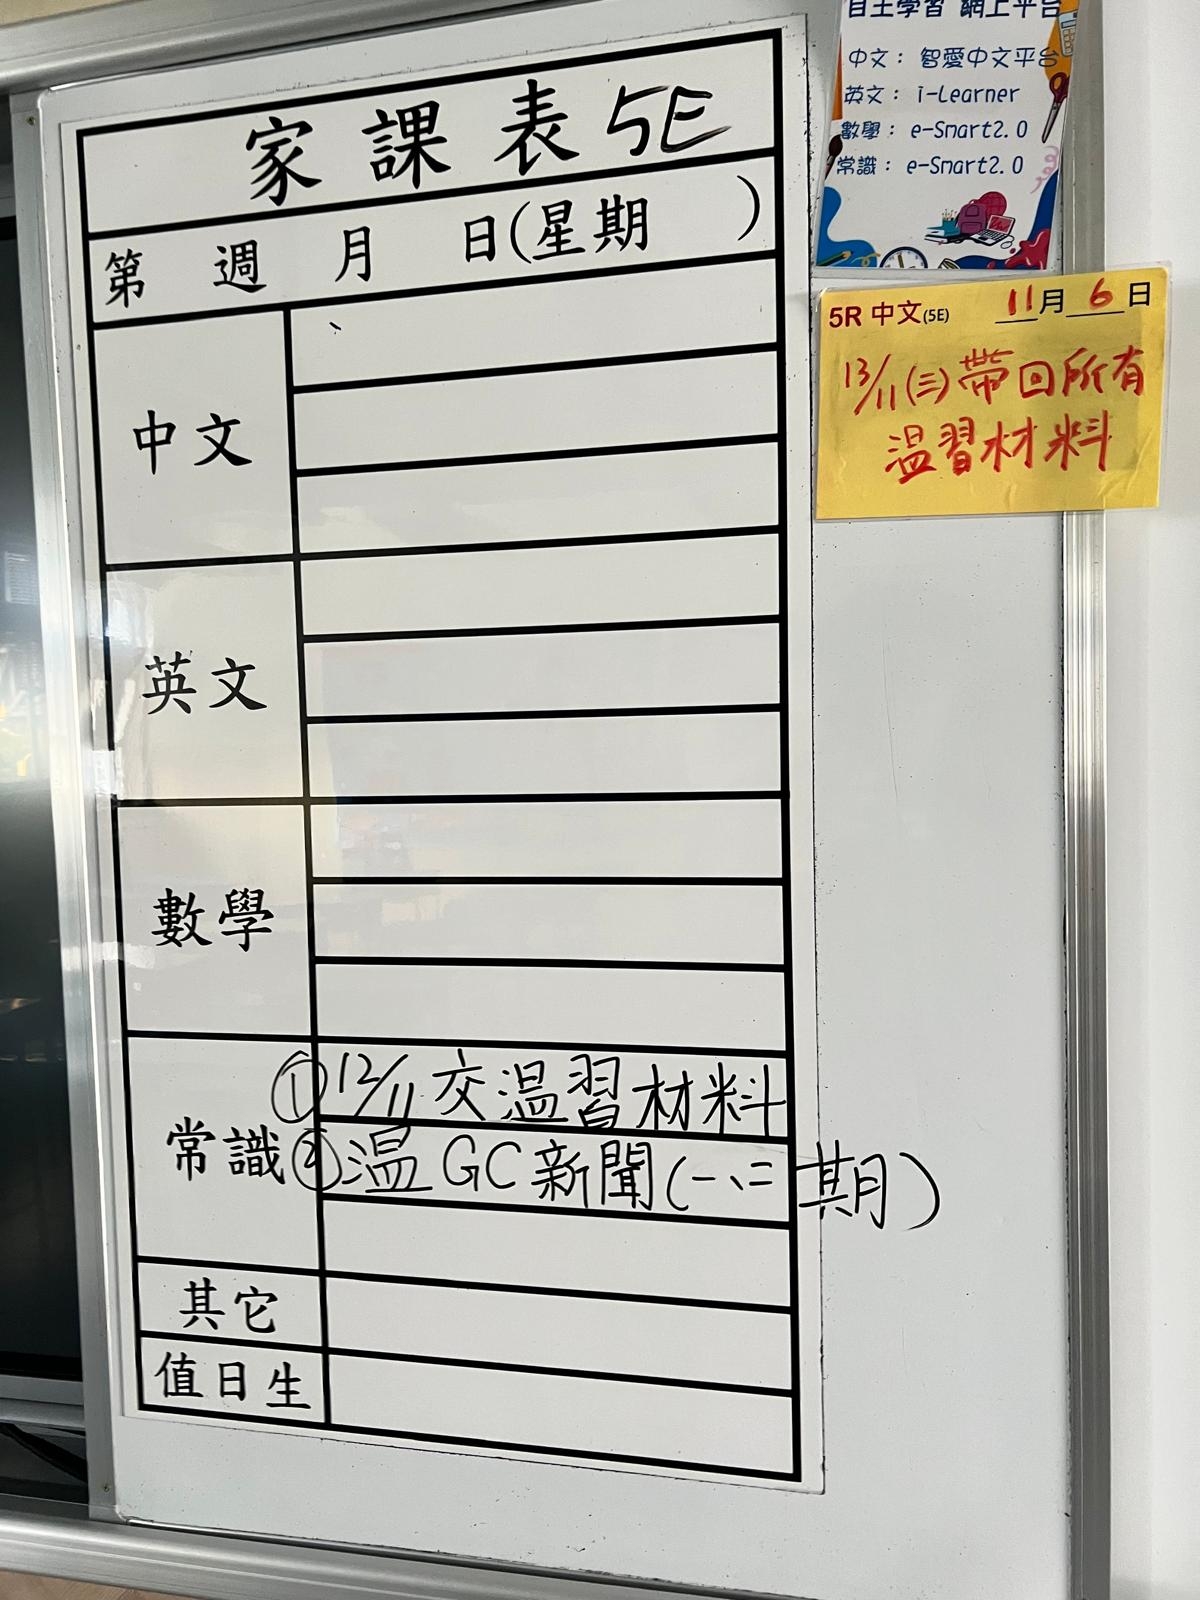 家課表 5E
第 週 月 日(星期 )
中文
英文
數學
常識
①12/11 交溫習材料
②溫GC新聞(一、二期)
其它
值日生
自主學習 網上平台
中文： 智愛中文平台
英文： i-Learner
數學： e-Smart2.0
常識： e-Smart2.0
5R 中文(5E) 11月6日
13/11(三)帶回所有
溫習材料